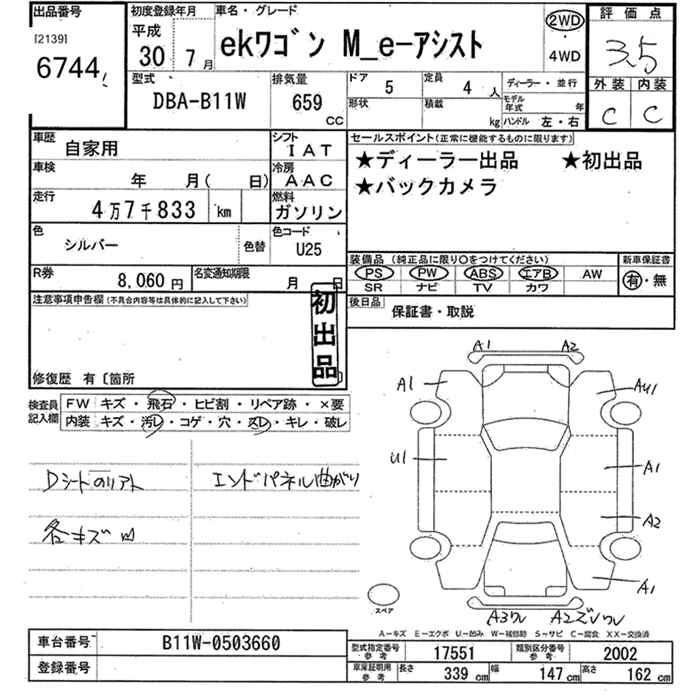 出品番号
[2139]
6744
初度登録年月
平成
30 7月
車名・グレード
ekワゴン M_e-アシスト
2WD
4WD
評価点
3.5
外装 内装
C C
型式
DBA-B11W
排気量
659
CC
ドア
5
定員
4 人
形状
積載
kg
ディーラー・並行
モデル年式 年
ハンドル 左・右
車歴
自家用
シフト
IAT
車検
年 月( 日)
冷房
AAC
走行
4万7千833 km
燃料
ガソリン
色
シルバー
色替
色コード
U25
R券
8,060円
名変通知期限
月 日
セールスポイント(正常に機能するものに限ります)
★ディーラー出品 ★初出品
★バックカメラ
装備品 (純正品に限り○をつけてください)
PS PW ABS エアB AW
SR ナビ TV カワ
新車保証書
有・無
後日品
保証書・取説
注意事項申告欄(不具合内容等は具体的に記入して下さい)
初出品
修復歴 有〔箇所
検査員記入欄
FW キズ・飛石・ヒビ割・リペア跡・×要
内装 キズ・汚レ・コゲ・穴・スレ・キレ・破レ
エンドパネル曲がり
各キズ凹
A1 A2
A1 AU1
U1 A1
A2
A1
スペア
A-キズ E-エクボ U-凹み W-補修跡 S-サビ C-腐食 XX-交換済
車台番号
B11W-0503660
登録番号
型式指定番号
参考
17551
類別区分番号
参考
2002
車庫証明用
参考
長さ 339 cm 幅 147 cm 高さ 162 cm